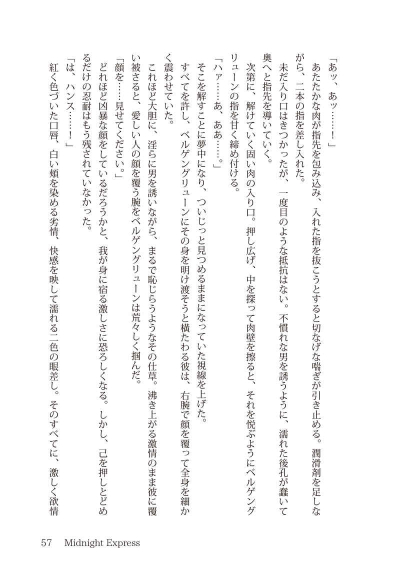 「あッ、あッ……！」
あたたかな肉が指先を包み込み、入れた指を抜こうとすると切なげな喘ぎが引き止める。潤滑剤を足しな
がら、二本の指を差し入れた。
未だ入り口はきつかったが、一度目のような抵抗はない。不慣れな男を誘うように、濡れた後孔が蠢いて
奥へと指先を導いていく。
次第に、解けていく固い肉の入り口。押し広げ、中を探って肉壁を擦ると、それを悦ぶようにベルゲング
リューンの指を甘く締め付ける。
「ハァ……あ、ああ……。」
そこを解すことに夢中になり、ついじっと見つめるままになっていた視線を上げた。
すべてを許し、ベルゲングリューンにその身を明け渡そうと横たわる彼は、右腕で顔を覆って全身を細か
く震わせていた。
これほど大胆に、淫らに男を誘いながら、まるで恥じらうようなその仕草。沸き上がる激情のまま彼に覆
い被さると、愛しい人の顔を覆う腕をベルゲングリューンは荒々しく掴んだ。
「顔を……見せてください。」
どれほど凶暴な顔をしているだろうかと、我が身に宿る激しさに恐ろしくなる。しかし、己を押しとどめ
るだけの忍耐はもう残されていなかった。
「は、ハンス……！」
紅く色づいた口唇、白い頬を染める劣情、快感を映して濡れる二色の眼差し。そのすべてに、激しく欲情
57 Midnight Express